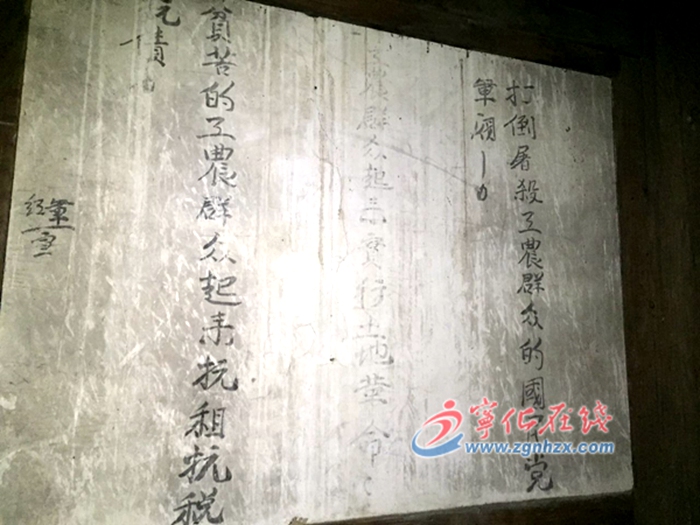 打倒屠殺工農群众的國民党
軍閥！
工農群众起来實行土地革命！
貧苦的工農群众起来抗租抗税
抗債！
紅軍宣
宁化在线
www.zgnhzx.com